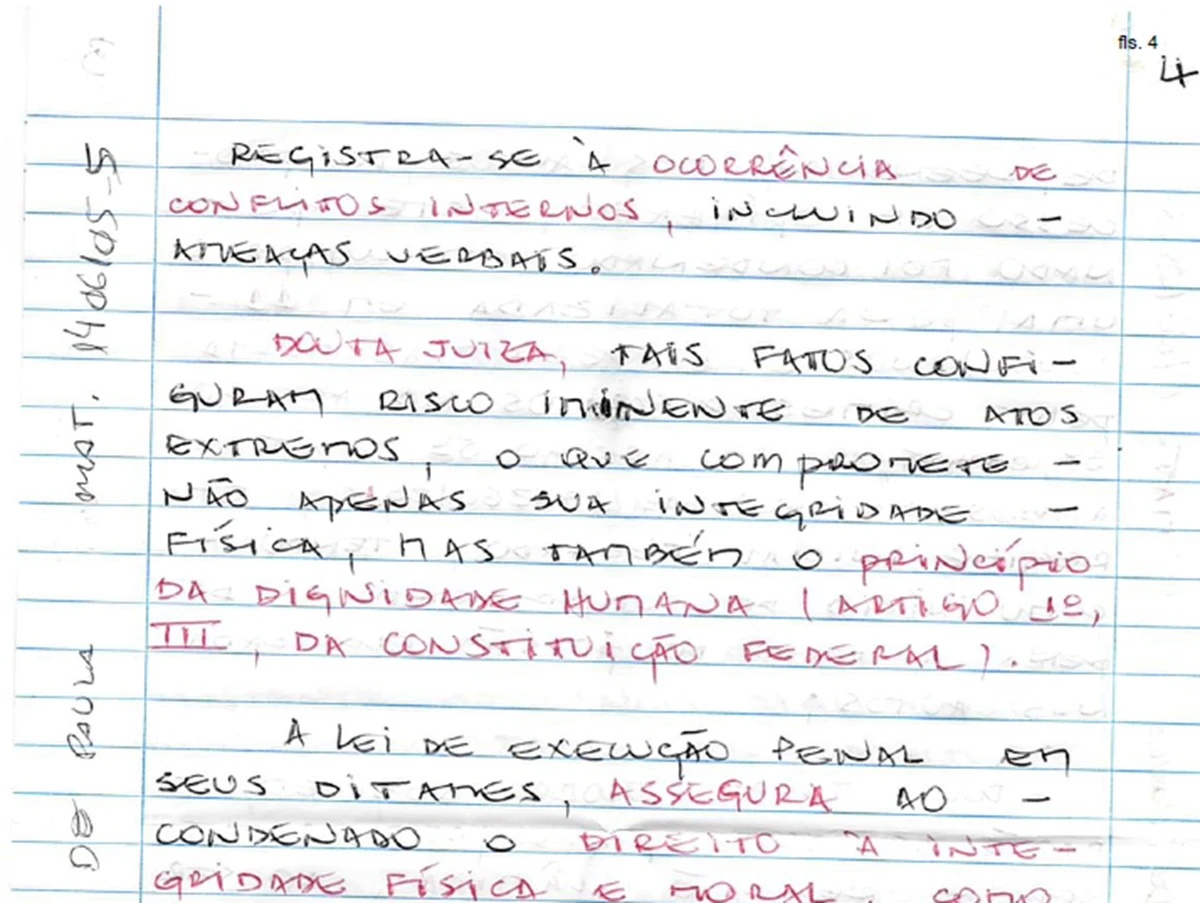 fls. 4
4
REGISTRA-SE À OCORRÊNCIA DE
CONFLITOS INTERNOS, INCLUINDO -
AMEAÇAS VERBAIS.
DOUTA JUIZA, TAIS FATOS CONFI-
GURAM RISCO IMINENTE DE ATOS
EXTREMOS, O QUE COMPROMETE -
NÃO APENAS SUA INTEGRIDADE -
FÍSICA, MAS TAMBÉM O PRINCÍPIO
DA DIGNIDADE HUMANA (ARTIGO 1º,
III, DA CONSTITUIÇÃO FEDERAL).
A LEI DE EXECUÇÃO PENAL EM
SEUS DITAMES, ASSEGURA AO -
CONDENADO O DIREITO À INTE-
GRIDADE FÍSICA E MORAL, COMO
DE PAULA MAT. 1406105-5